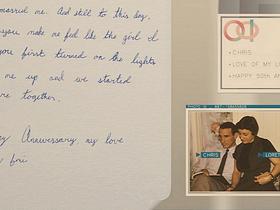 married me. And still to this day,
you make me feel like the girl I
you first turned on the lights
me up and we started
together.
Anniversary my love
CHRIS
LOVE OF MY L
HAPPY 50th A
CHRIS
LORET